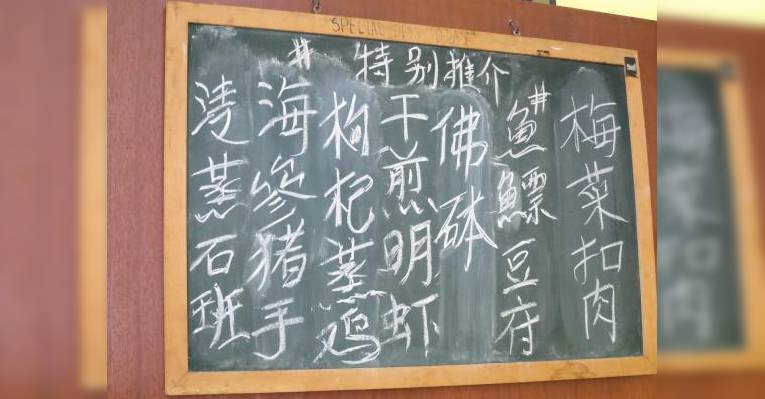 SPECIAL TODAY
# 特别推介 #
梅菜扣肉
魚鰾豆府
佛砵
干煎明虾
枸杞蒸鸡
海參猪手
清蒸石班